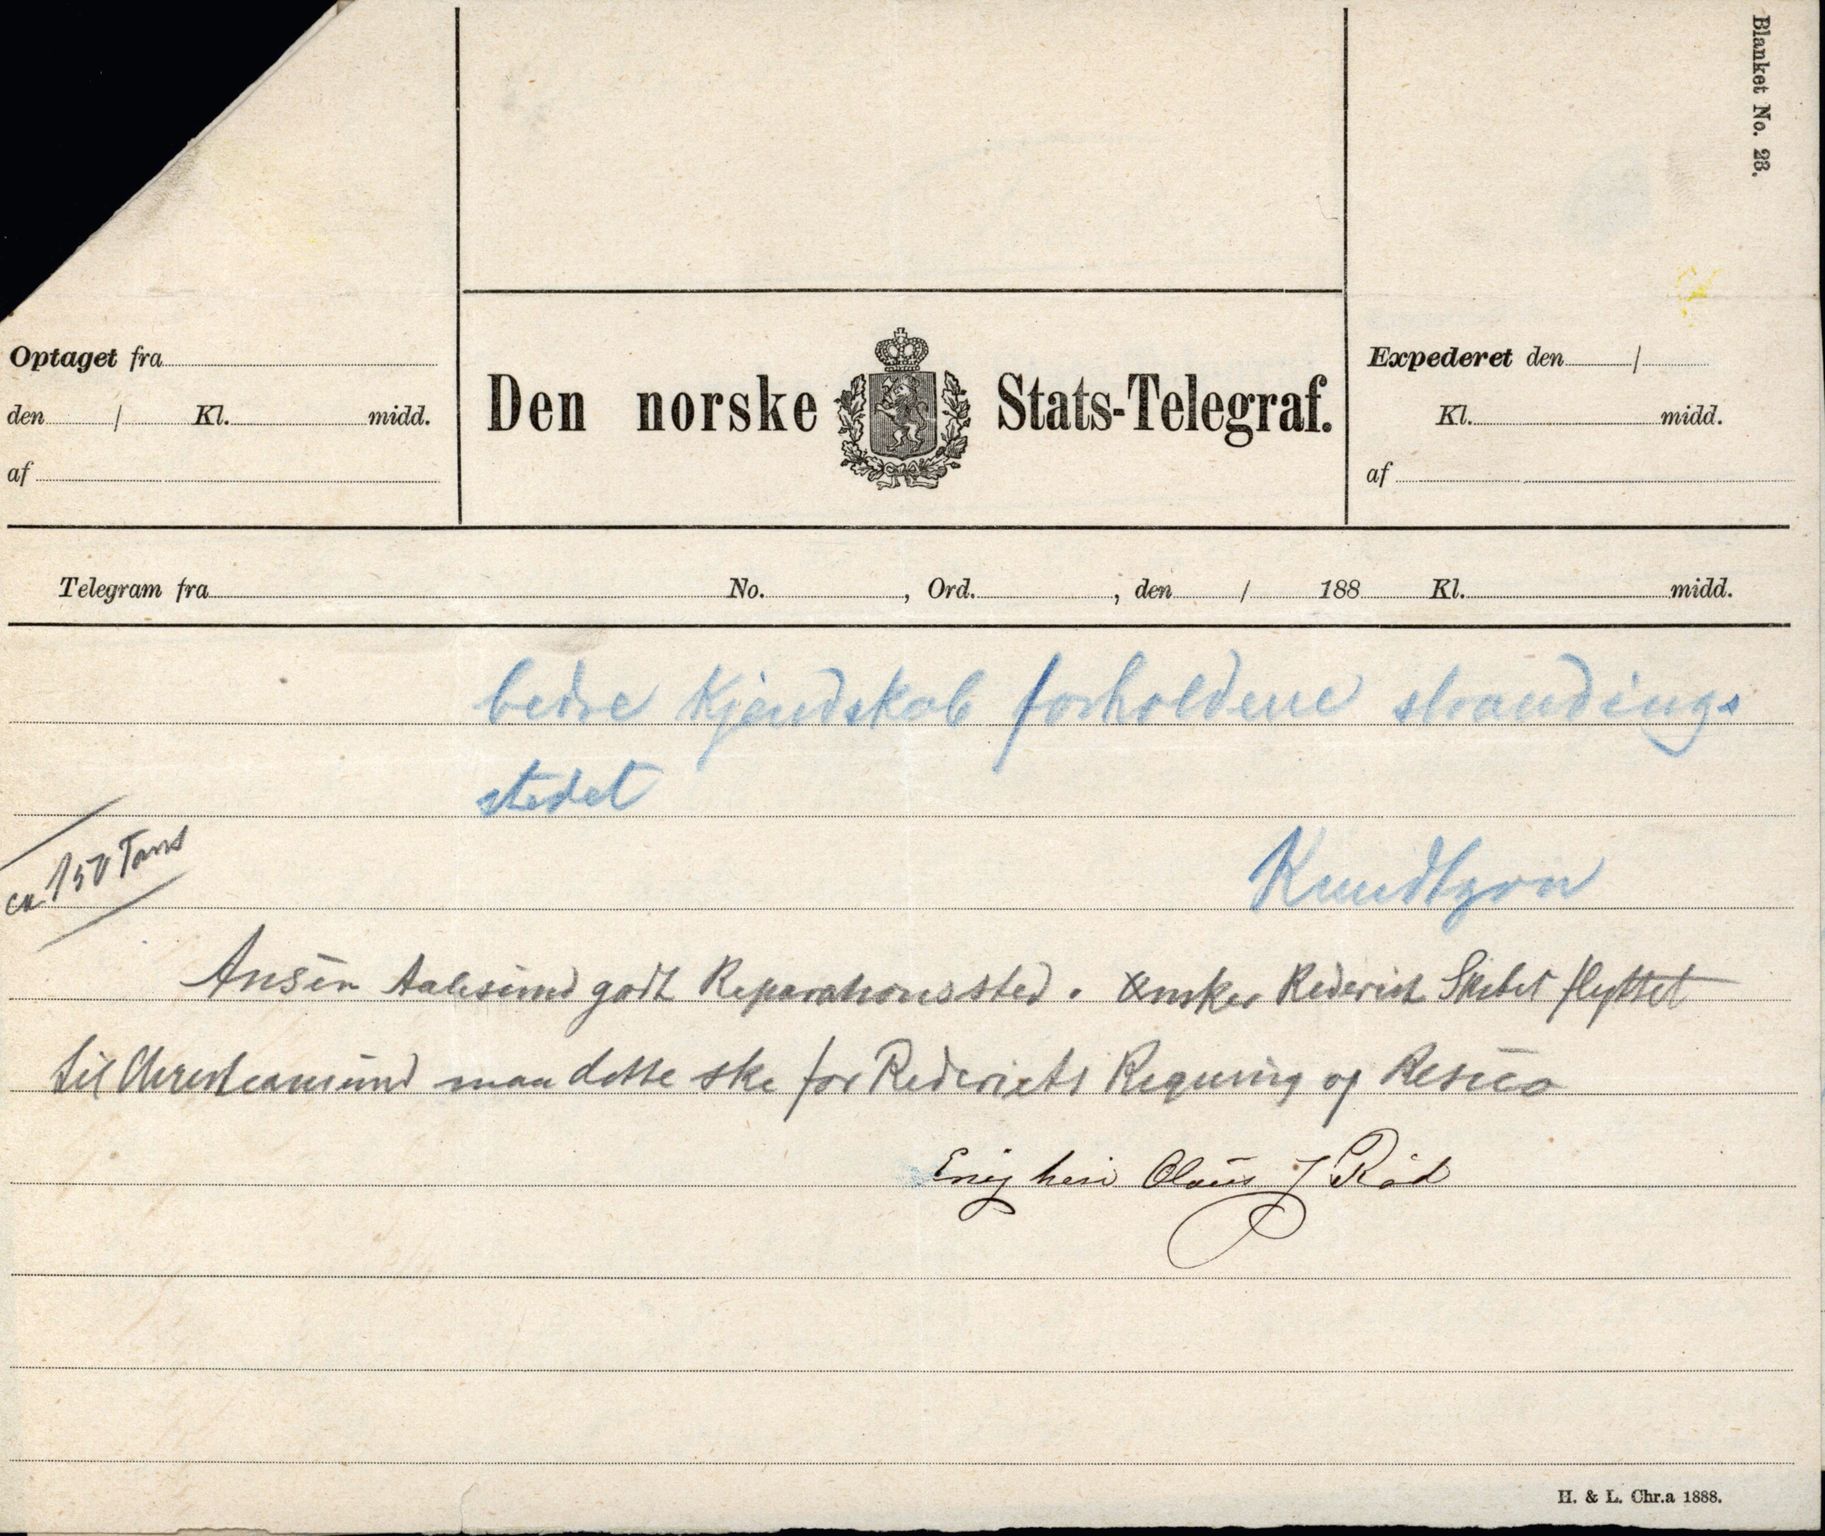 Blanket No. 23.
Optaget fra
den / Kl. midd.
af
Den norske Stats-Telegraf.
Expederet den /
Kl. midd.
af
Telegram fra No. , Ord. , den / 188 Kl. midd.
bedre Kjendskab forholdene strandings
stedet
Knudtzon
ca 150 Tons
Anser Aalesund godt Reparationssted. Ønsker Rederiet Skibet flyttet
til Christiansund maa dette ske for Rederiets Regning og Resico
Enig heri Olaus J Röd
H. & L. Chr.a 1888.